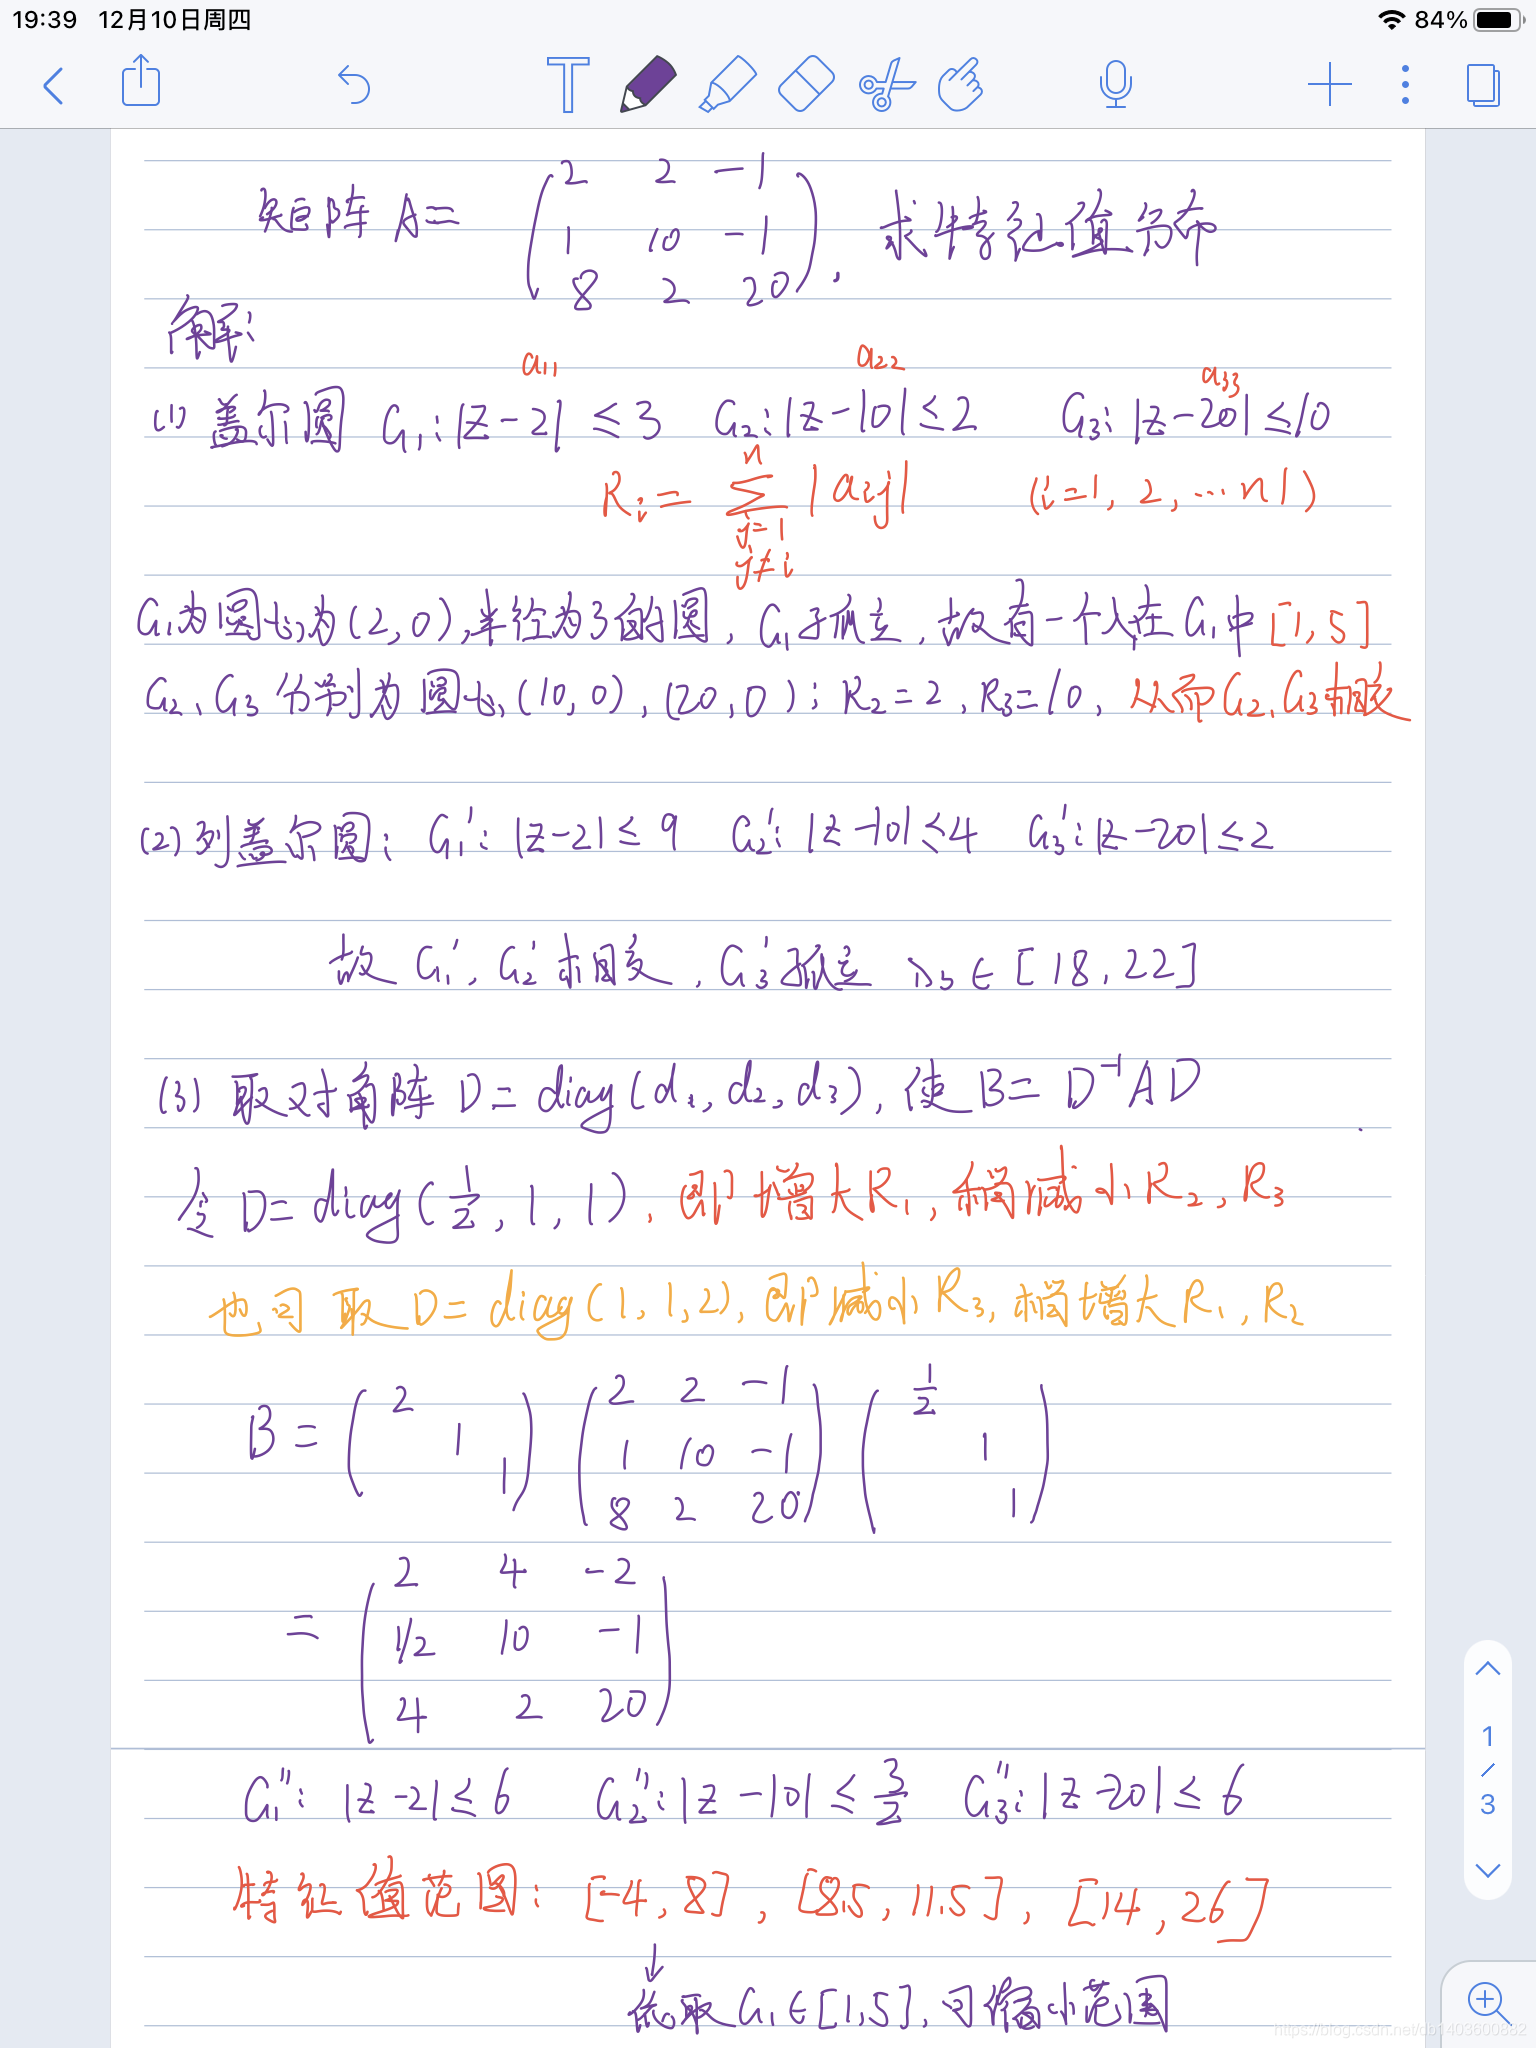 19:39 12月10日周四 84%
矩阵 A= (2 2 -1
1 10 -1
8 2 20). 求特征值分布
解:
a11 a22 a33
(1) 盖尔圆 G1: |z-2| ≤ 3 G2: |z-10| ≤ 2 G3: |z-20| ≤ 10
Ri = n ∑ j=1 j≠i |aij| (i=1, 2, … n1)
G1为圆心为(2,0),半径为3的圆, G1孤立, 故有一个λ在G1中 [1,5]
G2、G3 分别为圆心(10,0), (20,0); R2=2, R3=10, 从而G2、G3相交
(2) 列盖尔圆: G1': |z-2| ≤ 9 G2': |z-10| ≤ 4 G3': |z-20| ≤ 2
故 G1', G2' 相交, G3' 孤立 λ3 ∈ [18, 22]
(3) 取对角阵 D= diag(d1, d2, d3), 使 B= D⁻¹AD
令 D= diag(1/2, 1, 1), 即增大R1, 稍减小R2, R3
也可取 D= diag(1,1,2), 即减小R3, 稍增大R1, R2
B = (2
1
1) (2 2 -1
1 10 -1
8 2 20) (1/2
1
1)
= (2 4 -2
1/2 10 -1
4 2 20)
G1'': |z-2| ≤ 6 G2'': |z-10| ≤ 3/2 G3'': |z-20| ≤ 6
特征值范围: [-4, 8], [8.5, 11.5], [14, 26]
↓
依取 G1 ∈ [1,5], 可缩小范围
1
/
3
https://blog.csdn.net/db1403600882